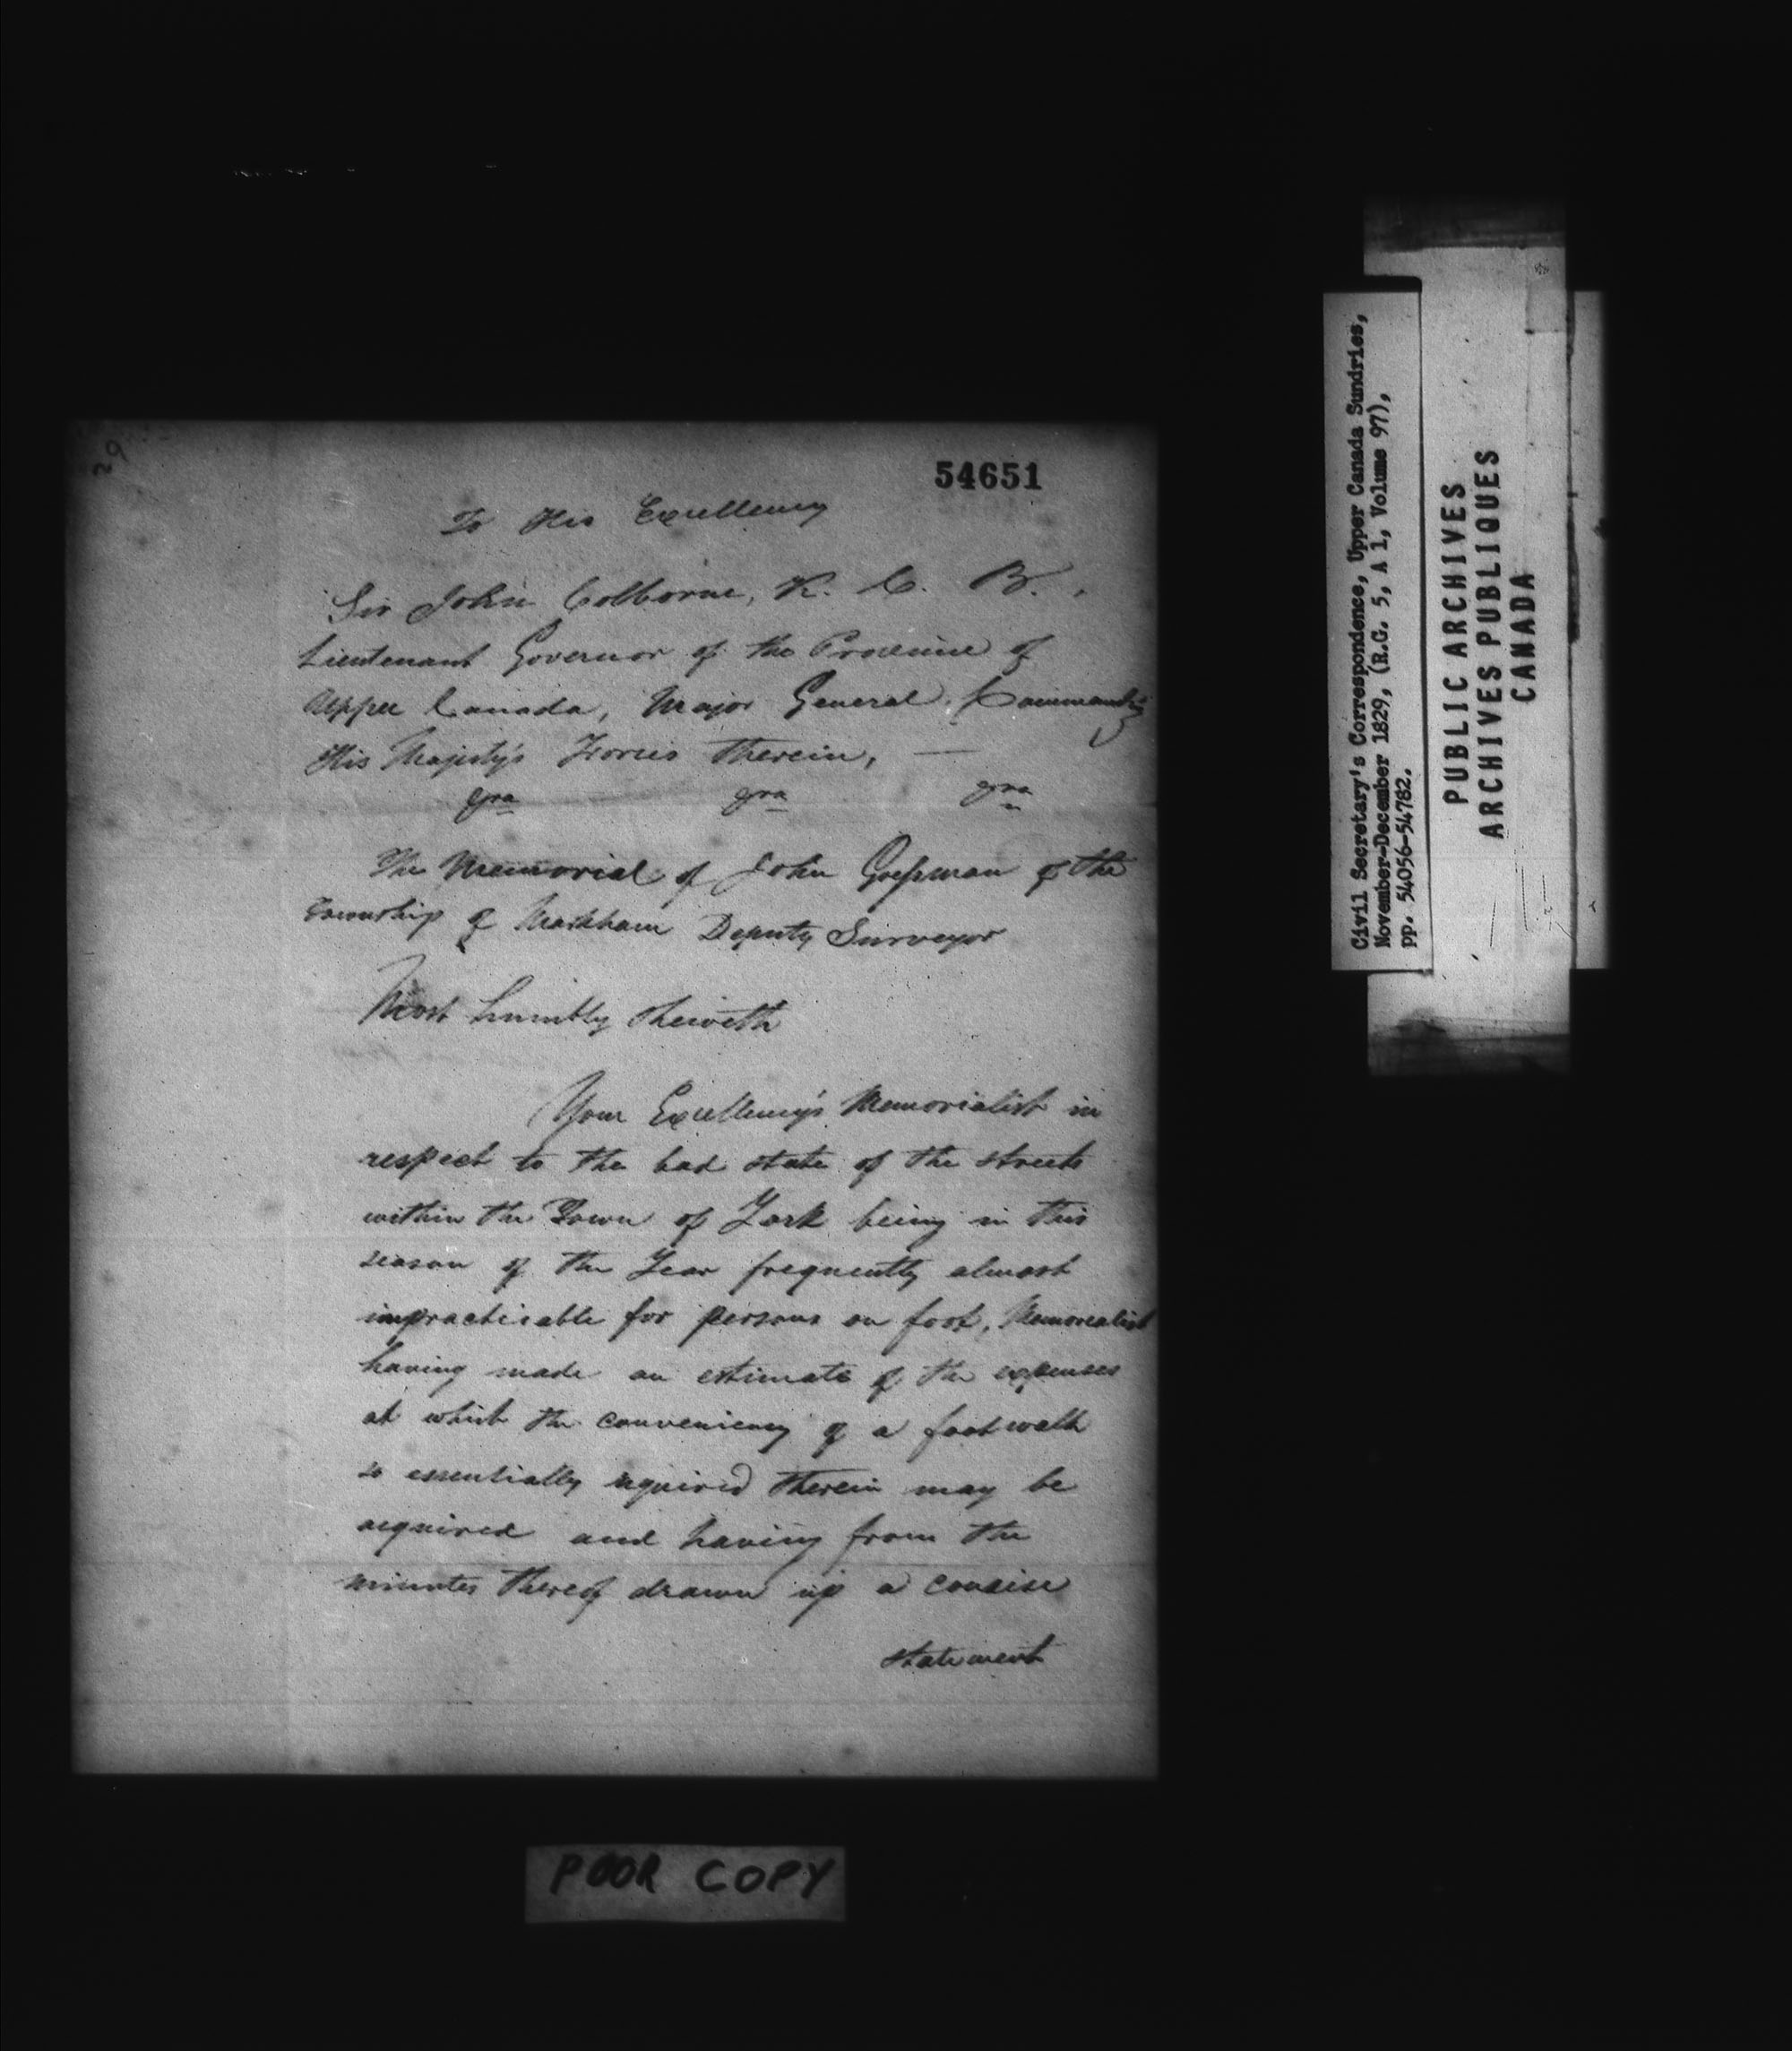 29
54651
To His Excellency
Sir John Colborne, K. C. B.,
Lieutenant Governor of the Province of
Upper Canada, Major General Commandg
His Majesty's Forces therein, —
&ca &ca &ca
The Memorial of John Goessman of the
Township of Markham Deputy Surveyor
Most humbly sheweth
Your Excellency's Memorialist in
respect to the bad state of the streets
within the Town of York being in this
season of the Year frequently almost
impracticable for persons on foot, Memorialist
having made an estimate of the expenses
at which the conveniency of a foot walk
so essentially required therein may be
acquired and having from the
minutes thereof drawn up a concise
statement
POOR COPY
Civil Secretary's Correspondence, Upper Canada Sundries,
November-December 1829, (R.G. 5, A 1, Volume 97),
pp. 54056-54782.
PUBLIC ARCHIVES
ARCHIVES PUBLIQUES
CANADA